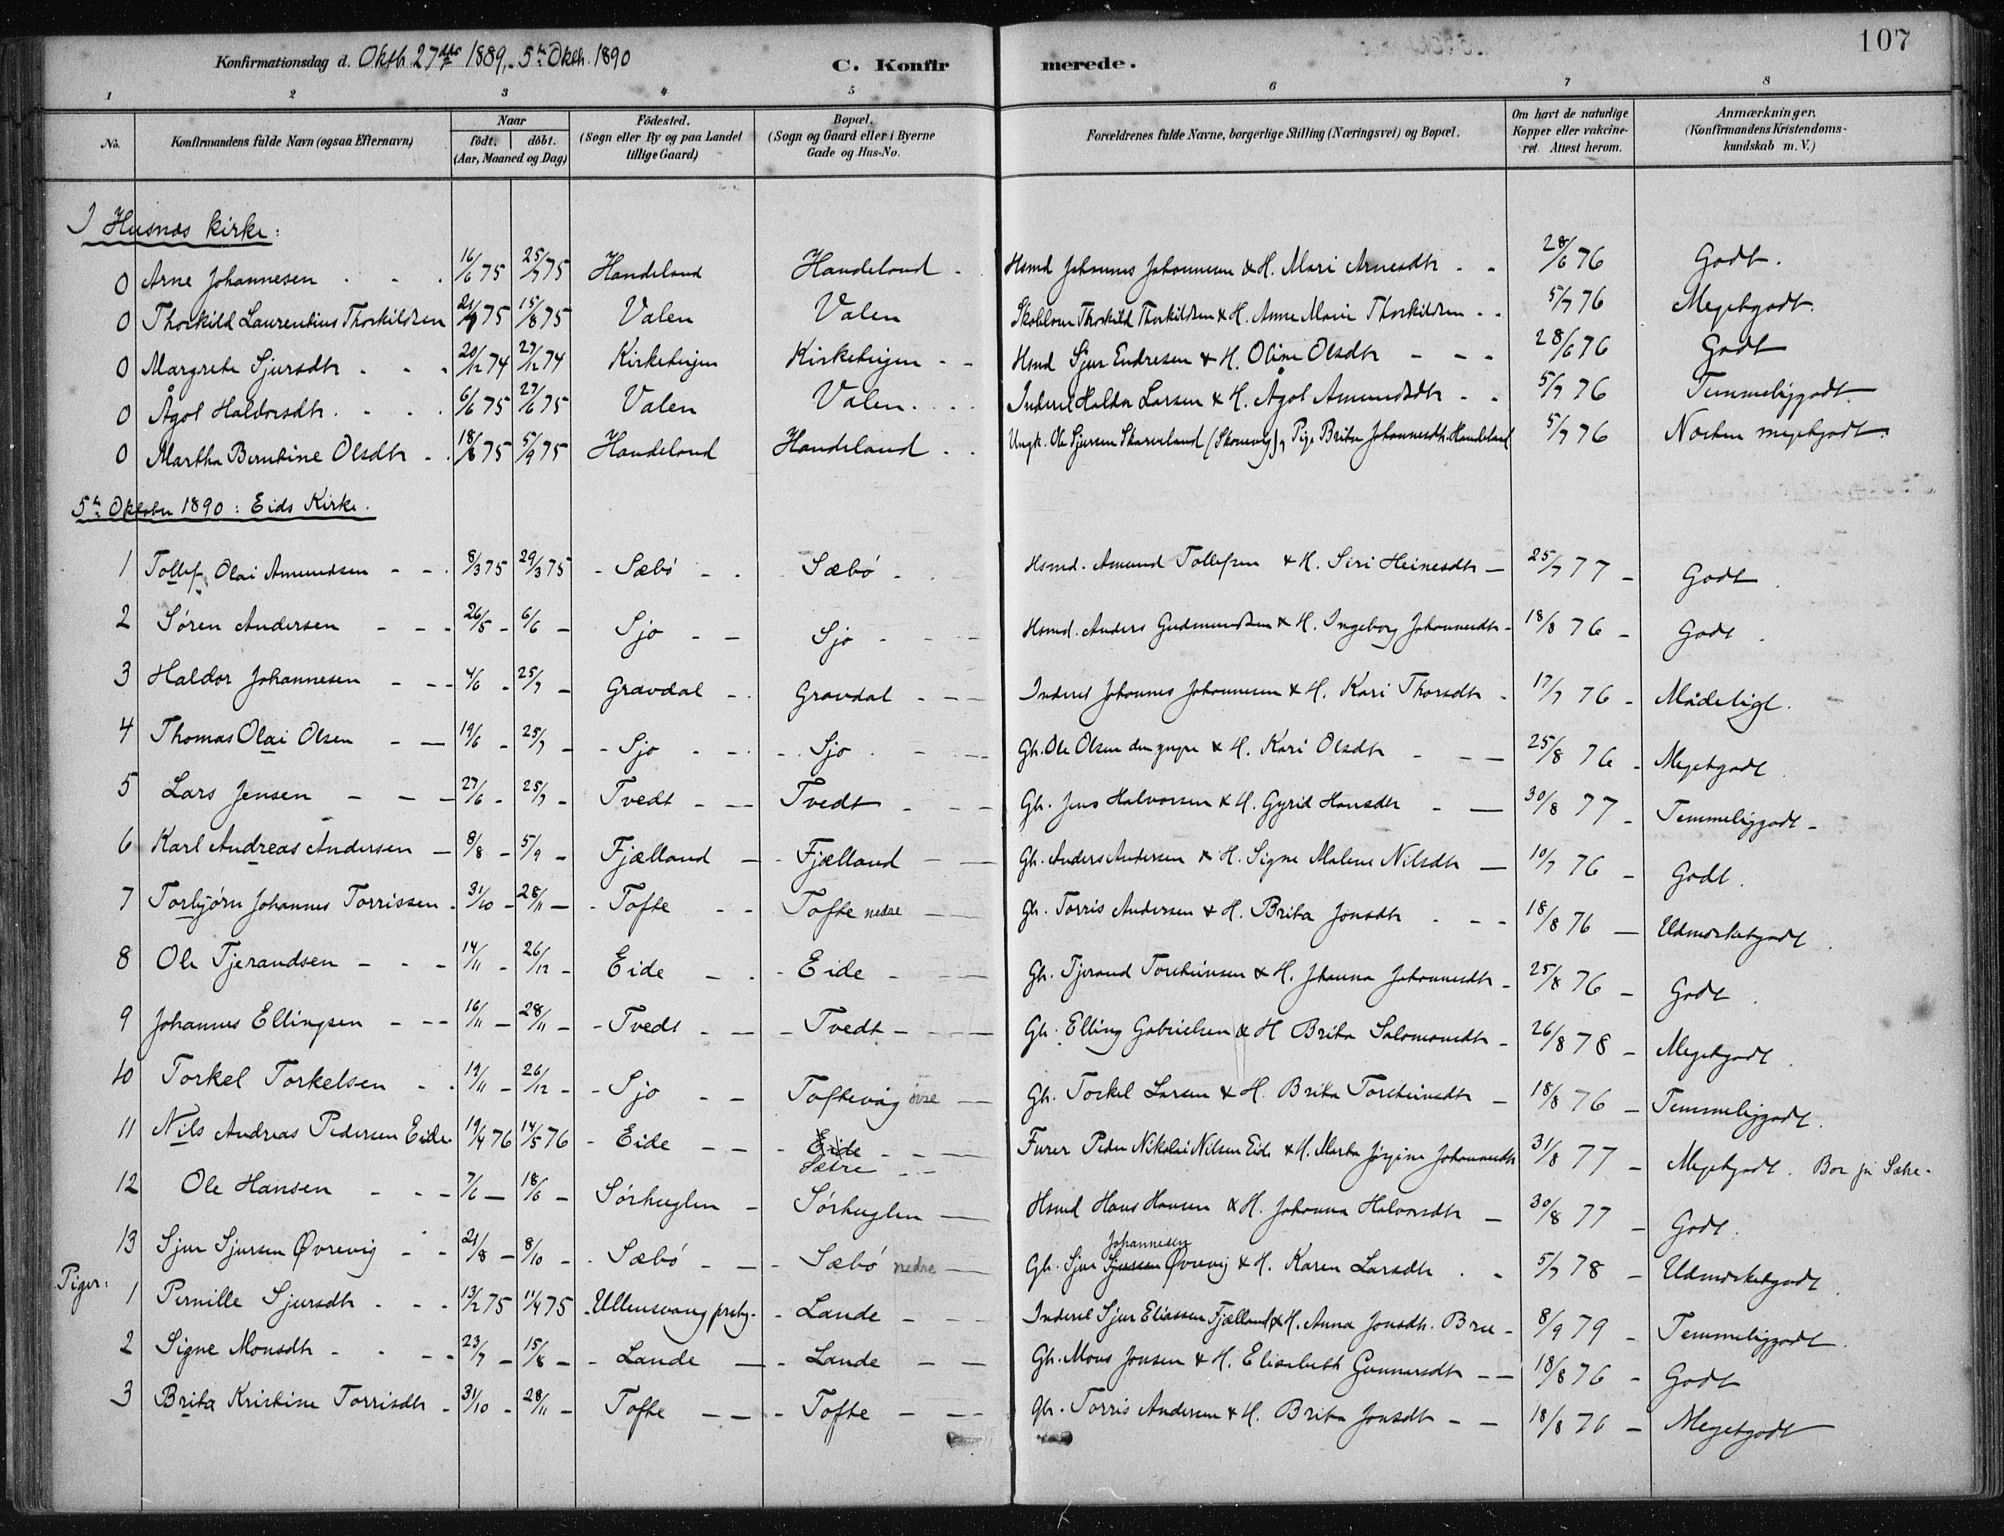 107
Konfirmationsdag d. Oktb. 27de 1889, 5te Oktb. 1890 C. Konfir merede.
1 2 3 4 5 6 7 8
No. Konfirmandens fulde Navn (ogsaa Efternavn) Naar født. døbt. (Aar, Maaned og Dag) Födested. (Sogn eller By og paa Landet tillige Gaard) Bopæl. (Sogn og Gaard eller i Byerne Gade og Hus-No. Forældrenes fulde Navne, borgerlige Stilling (Næringsvei) og Bopæl. Om havt de naturlige Kopper eller vakcineret. Attest herom. Anmærkninger. (Konfirmandens Kristendomskundskab m. V.)
I Husnæs kirke:
0 Arne Johannesen 16/6 75 25/7 75 Handeland Handeland Hsmd Johannes Johannesen & H. Mari Arnesdtr 28/6 76 Godt.
0 Thorkild Laurentius Thorkildsen 75 15/8 75 Valen Valen Thorkild Thorkildsen & H. Anne Marie Thorkildsen 5/7 76 Megetgodt.
0 Margrete Sjursdtr 20/12 74 27/12 74 Kirkeheien Kirkeheien Hsmd Sjur Endresen & H. Oline Olsdtr 28/6 76 Godt
0 Ågot Haldorsdtr. 6/6 75 27/6 75 Valen Valen Inderst Haldor Larsen & H. Ågot Amundsdtr 5/7 76 Temmeliggodt.
0 Martha Berntine Olsdtr 18/8 75 5/9 75 Handeland Handeland Ungk. Ole Sjursen Skarveland (Skonevig), Pige Brita Johannesdtr. Handeland 5/7 76 Næsten megetgodt.
5te Oktober 1890: Eids Kirke.
1 Tollef Olai Amundsen 8/3 75 29/3 75 Sæbö Sæbö Hsmd. Amund Tollefsen & H. Siri Heinesdtr 25/7 77 Godt
2 Søren Andersen 26/5 - 6/6 - Sjo Sjo Hsmd. Anders Gudmundsen & H. Ingeborg Johannesdtr 18/8 76 Godt
3 Haldor Johannesen 4/6 - 25/7 - Gravdal Gravdal Inderst Johannes Johannesen & H. Kari Thorsdtr 17/7 76 Mådeligt.
4 Thomas Olai Olsen 19/6 - 25/7 - Sjo Sjo Gb. Ole Olsen den yngre & H. Kari Olsdtr 25/8 76 Megetgodt
5 Lars Jensen 27/6 - 25/7 - Tvedt Tvedt Gb. Jens Halvorsen & H. Gyrid Hansdtr 30/8 77 Temmeliggodt
6 Karl Andreas Andersen 8/8 - 5/9 - Fjælland Fjælland Gb. Anders Andersen & H. Signe Malene Nilsdtr 10/7 76 Godt.
7 Torbjørn Johannes Torrissen 31/10 - 28/11 - Tofte Tofte nedre Gb. Torris Andersen & H. Brita Jonsdtr 18/8 76 Udmærketgodt
8 Ole Tjerandsen 14/11 - 26/12 - Eide Eide Gb. Tjerand Torsteinsen & H. Johanna Johannesdtr 25/8 76 Godt
9 Johannes Ellingsen 16/11 - 28/11 - Tvedt Tvedt Gb. Elling Gabrielsen & H Brita Salomonsdtr 26/8 78 Megetgodt
10 Torkel Torkelsen 19/11 - 26/12 - Sjo Toftevåg øvre Gb. Torkel Larsen & H. Brita Torsteinsdtr 18/8 76 Temmeliggodt.
11 Nils Andreas Pedersen Eide 19/4 76 14/5 76 Eide Eide Sætre Furer Peder Nikolai Nilsen Eide & H. Marta Jørgine Johannesdtr 31/8 77 Megetgodt. Bor på Sætre
12 Ole Hansen 7/6 - 18/6 - Sørhuglen Sørhuglen Hsmd Hans Hansen & H. Johanna Halvorsdtr 30/8 77 Godt.
13 Sjur Sjursen Øvrevig 21/8 - 8/10 - Sæbö Sæbö nedre Gb. Sjur Sjursen Johannesen Øvrevig & H. Karen Larsdtr 5/7 78 Udmærketgodt
Piger:
1 Pernille Sjursdtr 13/2 75 11/4 75 Ullensvang prstg. Lande Inderst Sjur Eliassen Fjælland & H. Anna Jonsdtr. Bru 8/9 79 Temmeliggodt
2 Signe Monsdtr 23/7 - 15/8 - Lande Lande Gb. Mons Jonsen & H. Elisabeth Gunnarsdtr 18/8 76 Godt
3 Brita Kristine Torrisdtr 31/10 - 28/11 - Tofte Tofte Gb. Torris Andersen & H. Brita Jonsdtr 18/8 76 Megetgodt